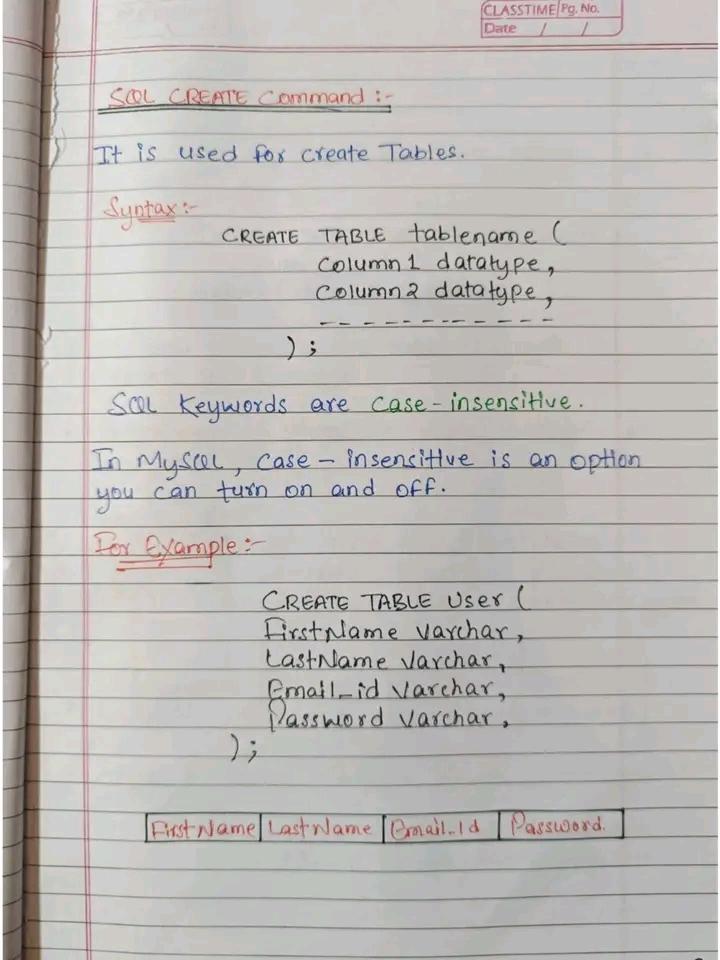 CLASSTIME Pg. No.
Date / /
SQL CREATE Command :-
It is used for create Tables.
Syntax :-
CREATE TABLE tablename (
Column1 datatype,
Column2 datatype,
------------
);
SQL Keywords are case-insensitive.
In MySQL, case-insensitive is an option
you can turn on and off.
For Example :-
CREATE TABLE User (
FirstName varchar,
LastName varchar,
Email_id varchar,
Password varchar,
);
FirstName LastName Email_Id Password.